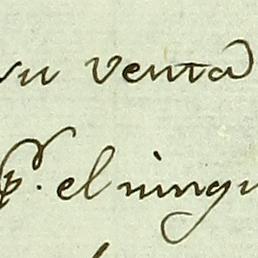 su venta
p.r el ningu